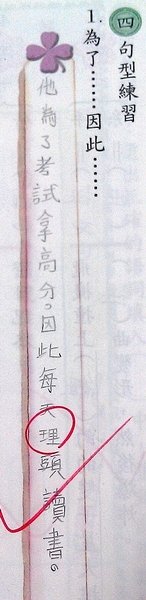 四 句型練習
1. 為了……因此……
他為了考試拿高分。因此每天理頭讀書。